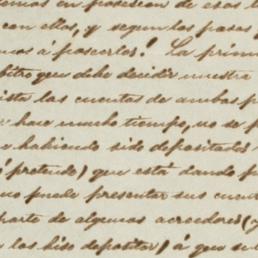 en posesion de esos
con ellos, y segun los pasos
a poseerlos! La prim
bitro que debe decidir nuestra
ista las cuentas de ambas p
hace mucho tiempo, no se p
habiendo sido depositados
pretende) que está dando p
no puede presentar sus cuent
parte de algunos acreedores (
los hizo depositar) á que se